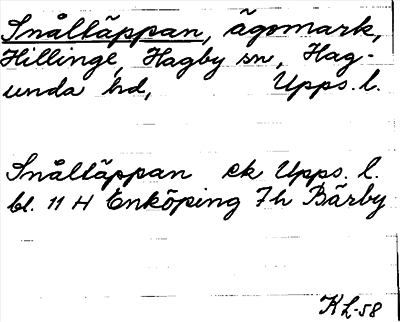 Snåltäppan, ägomark,
Hillinge, Hagby sn, Hag-
unda hd, Upps. l.
Snåltäppan ek Upps. l.
bl. 11 H Enköping 7h Bärby
KL-58